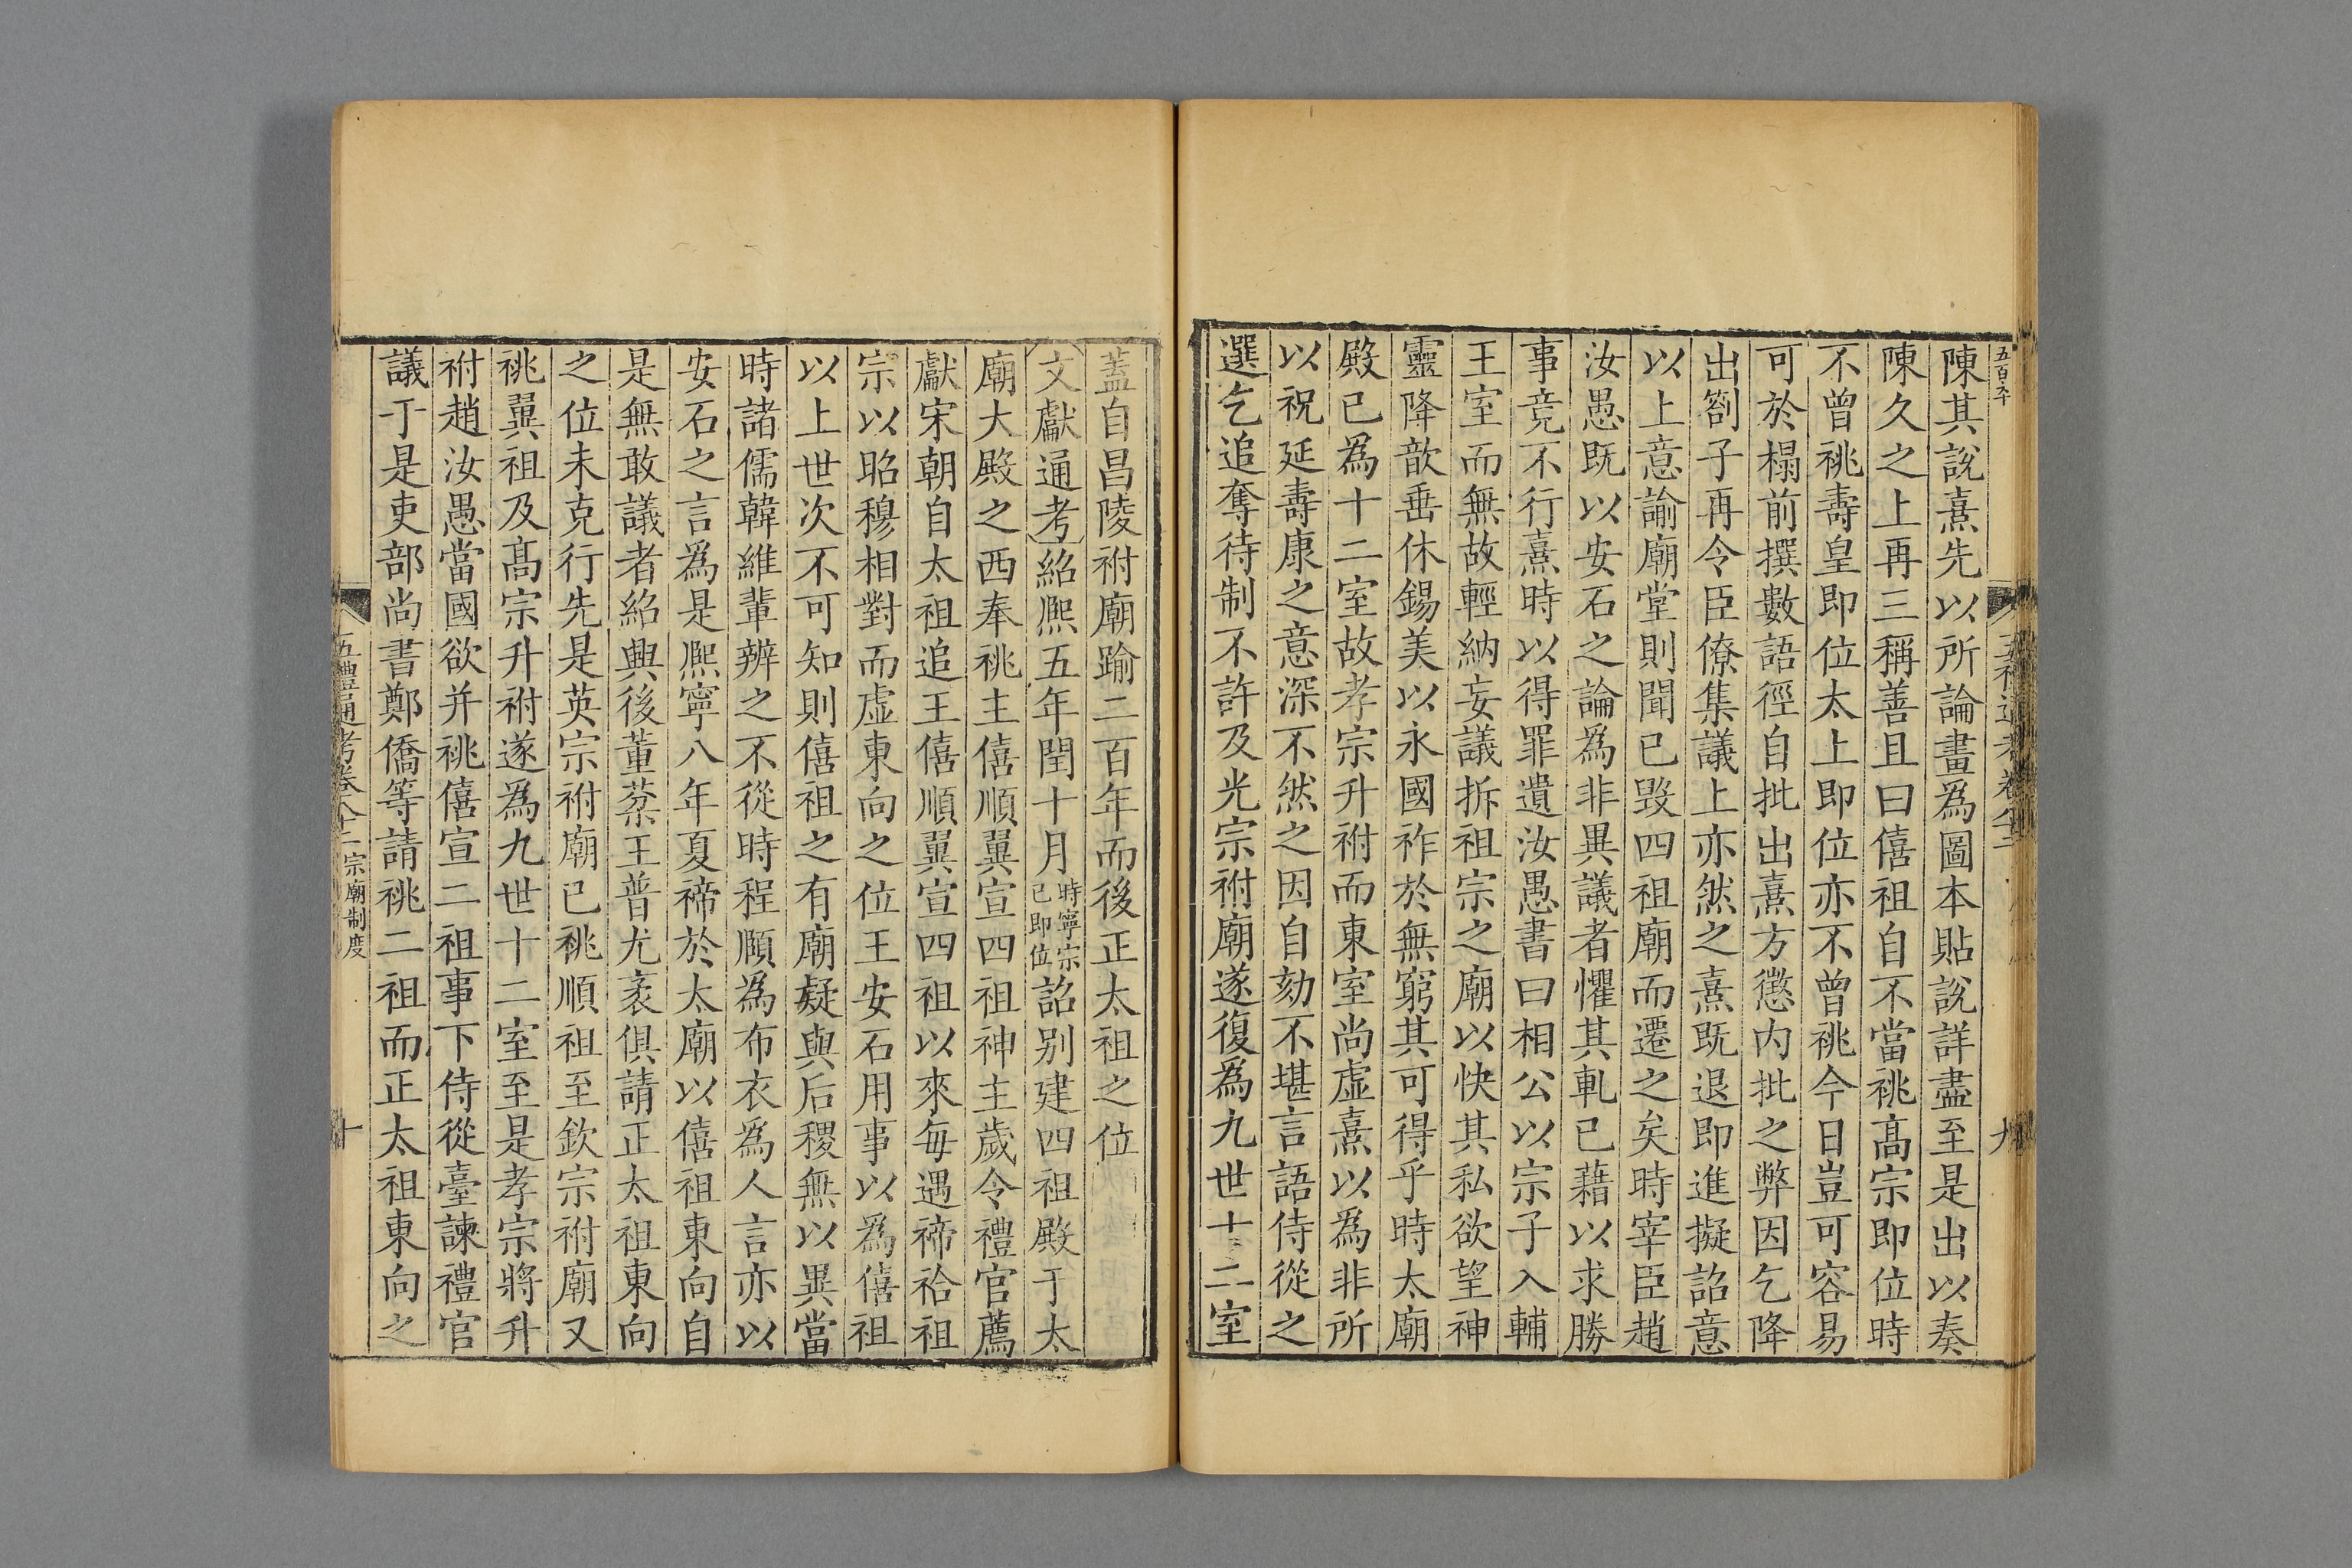 五百六十
陳其說熹先以所論畫為圖本貼說詳盡至是出以奏
陳久之上再三稱善且曰僖祖自不當祧髙宗即位時
不曾祧壽皇即位太上即位亦不曾祧今日豈可容易
可於榻前撰數語徑自批出熹方懲内批之弊因乞降
出劄子再令臣僚集議上亦然之熹既退即進擬詔意
以上意諭廟堂則聞已毀四祖廟而遷之矣時宰臣趙
汝愚既以安石之論為非異議者懼其軋已藉以求勝
事竟不行熹時以得罪遺汝愚書曰相公以宗子入輔
王室而無故輕納妄議拆祖宗之廟以快其私欲望神
靈降歆垂休錫美以永國祚於無窮其可得乎時太廟
殿已為十二室故孝宗升祔而東室尚虛熹以為非所
以祝延壽康之意深不然之因自劾不堪言語侍從之
選乞追奪待制不許及光宗祔廟遂復為九世十二室
蓋自昌陵祔廟踰二百年而後正太祖之位
文獻通考紹熙五年閏十月時寧宗已即位詔别建四祖殿于太
廟大殿之西奉祧主僖順翼宣四祖神主歲令禮官薦
獻宋朝自太祖追王僖順翼宣四祖以來每遇禘祫祖
宗以昭穆相對而虛東向之位王安石用事以為僖祖
以上世次不可知則僖祖之有廟疑與后稷無以異當
時諸儒韓維輩辨之不從時程頤為布衣為人言亦以
安石之言為是熙寧八年夏禘於太廟以僖祖東向自
是無敢議者紹興後董棻王普尤袤俱請正太祖東向
之位未克行先是英宗祔廟已祧順祖至欽宗祔廟又
祧翼祖及髙宗升祔遂為九世十二室至是孝宗將升
祔趙汝愚當國欲并祧僖宣二祖事下侍從臺諫禮官
議于是吏部尚書鄭僑等請祧二祖而正太祖東向之
五禮通考卷八十二 宗廟制度 十